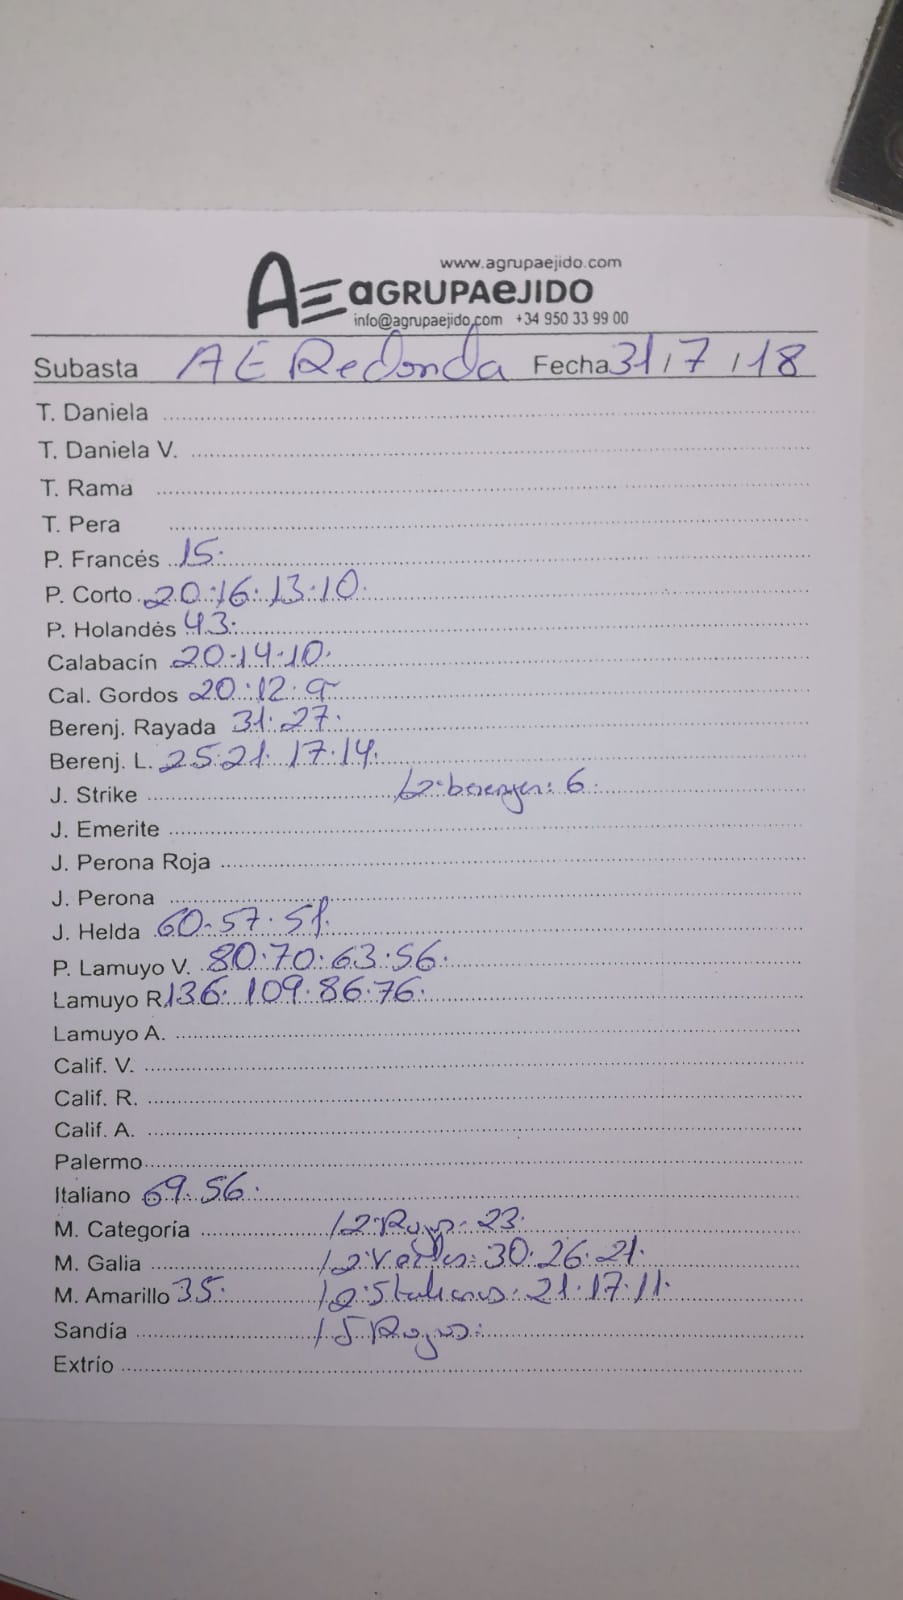 www.agrupaejido.com
AE aGRUPAeJIDO
info@agrupaejido.com +34 950 33 99 00
Subasta AE Redonda Fecha 31/7/18
T. Daniela
T. Daniela V.
T. Rama
T. Pera
P. Francés 15.
P. Corto 20.16.13.10.
P. Holandés 43.
Calabacín 20.14.10.
Cal. Gordos 20.12.9
Berenj. Rayada 31.27.
Berenj. L. 25.21.17.14.
J. Strike 6.
J. Emerite
J. Perona Roja
J. Perona
J. Helda 60.57.51.
P. Lamuyo V. 80.70.63.56.
Lamuyo R 136.109.86.76.
Lamuyo A.
Calif. V.
Calif. R.
Calif. A.
Palermo
Italiano 69.56.
M. Categoría 23.
M. Galia 30.26.21.
M. Amarillo 35. 21.17.11.
Sandía Rojos:
Extrío